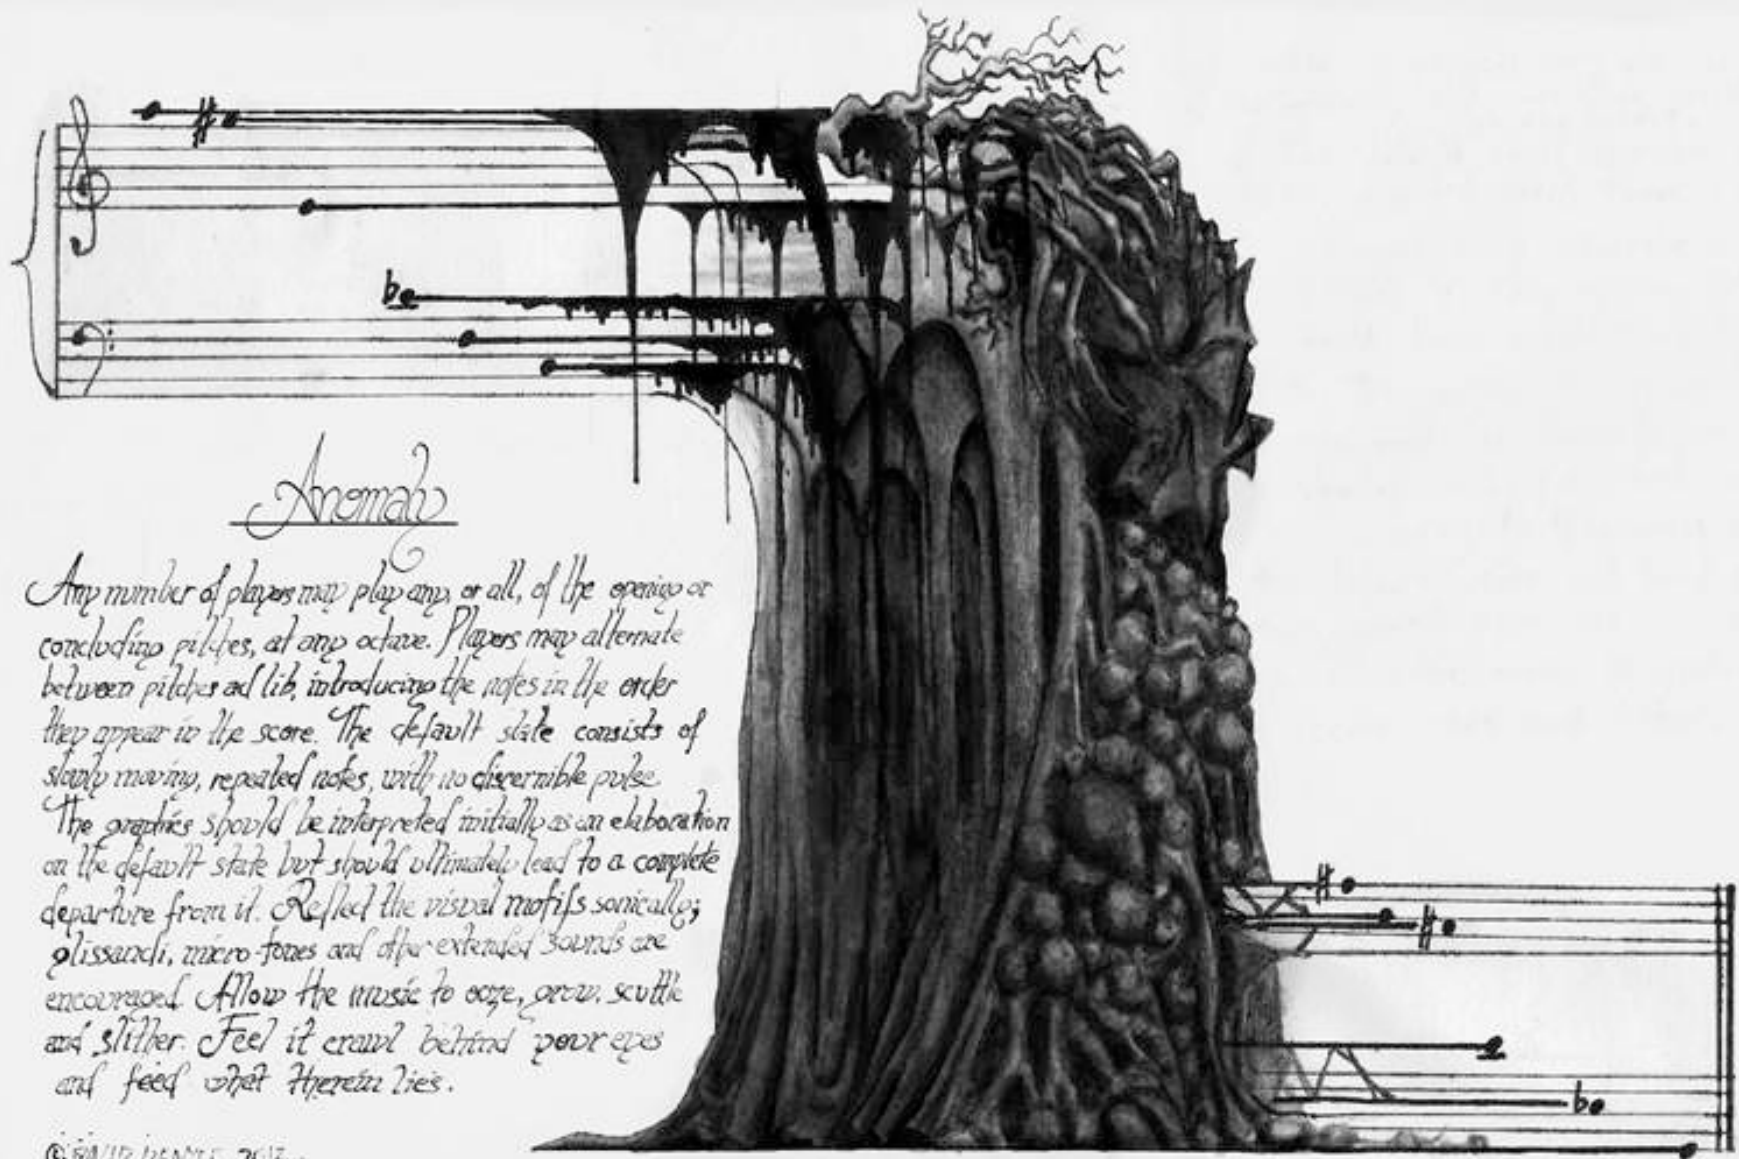 Anomaly
Any number of players may play any, or all, of the opening or
concluding pitches, at any octave. Players may alternate
between pitches ad lib, introducing the notes in the order
they appear in the score. The default state consists of
slowly moving, repeated notes, with no discernible pulse.
The graphics should be interpreted initially as an elaboration
on the default state but should ultimately lead to a complete
departure from it. Reflect the visual motifs sonically;
glissandi, micro-tones and other extended sounds are
encouraged. Allow the music to ooze, grow, scuttle
and slither. Feel it crawl behind your eyes
and feed what therein lies.
©